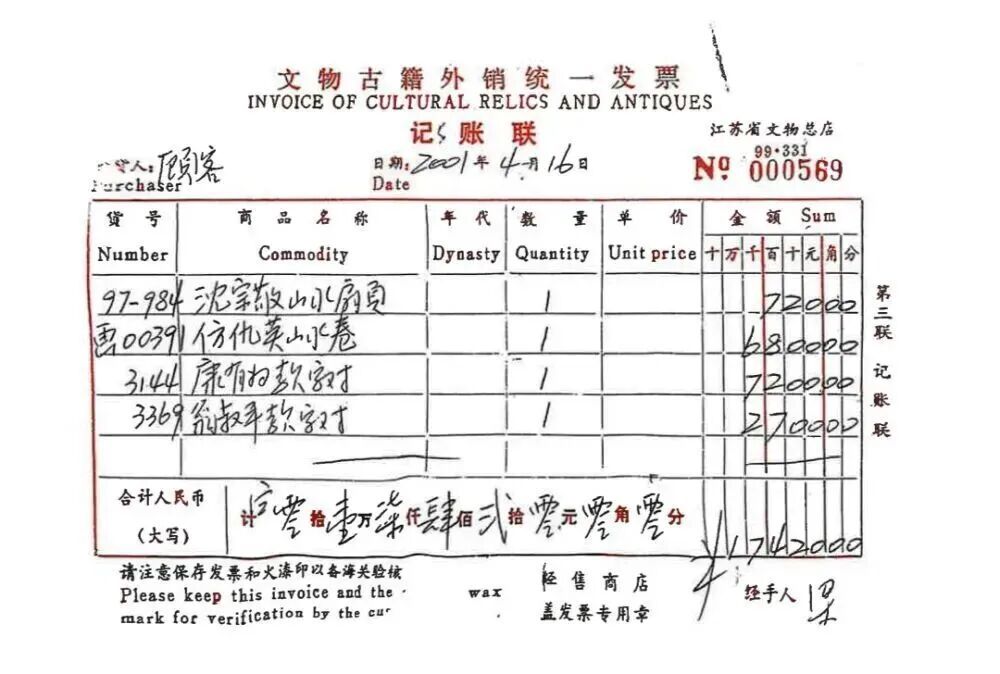 文物古籍外销统一发票
INVOICE OF CULTURAL RELICS AND ANTIQUES
记账联
江苏省文物总店
99·331
Nº 000569
货人：顾客
Purchaser
日期：2001年4月16日
Date
货号 商品名称 年代 数量 单价 金额 Sum
Number Commodity Dynasty Quantity Unit price 十万千百十元角分
97-984 沈宗敬山水扇页 1 72000
画00391 仿仇英山水卷 1 680000
3144 康有为款字对 1 720000
3369 翁叔平款字对 1 270000
合计人民币
（大写）
计零拾壹万柒仟肆佰贰拾零元零角零分
¥1742000
第三联 记账联
请注意保存发票和火漆印以备海关验核
Please keep this invoice and the wax
mark for verification by the cu
经售商店
盖发票专用章
经手人